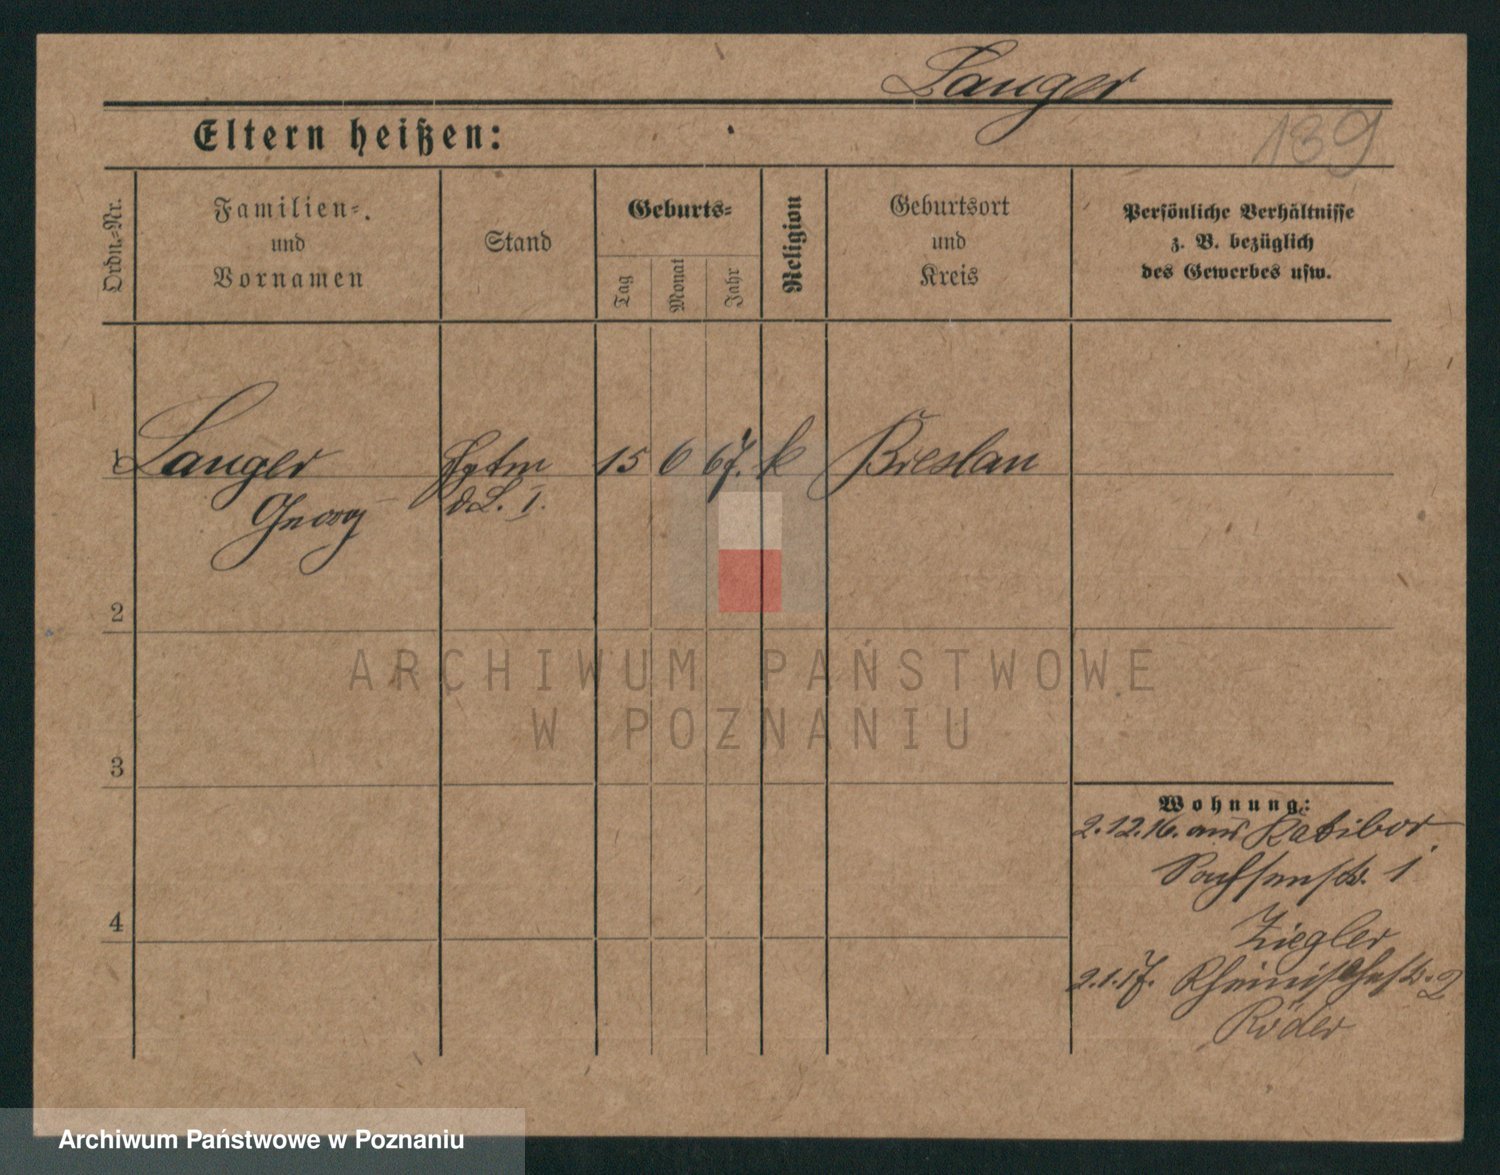 Langer
Eltern heißen:
139
Ordn.-Nr.
Familien-
und
Vornamen
Stand
Geburts-
Tag
Monat
Jahr
Religion
Geburtsort
und
Kreis
Persönliche Verhältnisse
z. B. bezüglich
des Gewerbes usw.
1 Langer Hptm 15 6 67. k Breslau
Georg d L. I.
2
3
4
Wohnung:
2.12.16. aus Ratibor.
Sachsenstr. 1
Ziegler
2.1.17. Rheinischestr. 2
Röder
ARCHIWUM PAŃSTWOWE
W POZNANIU
Archiwum Państwowe w Poznaniu